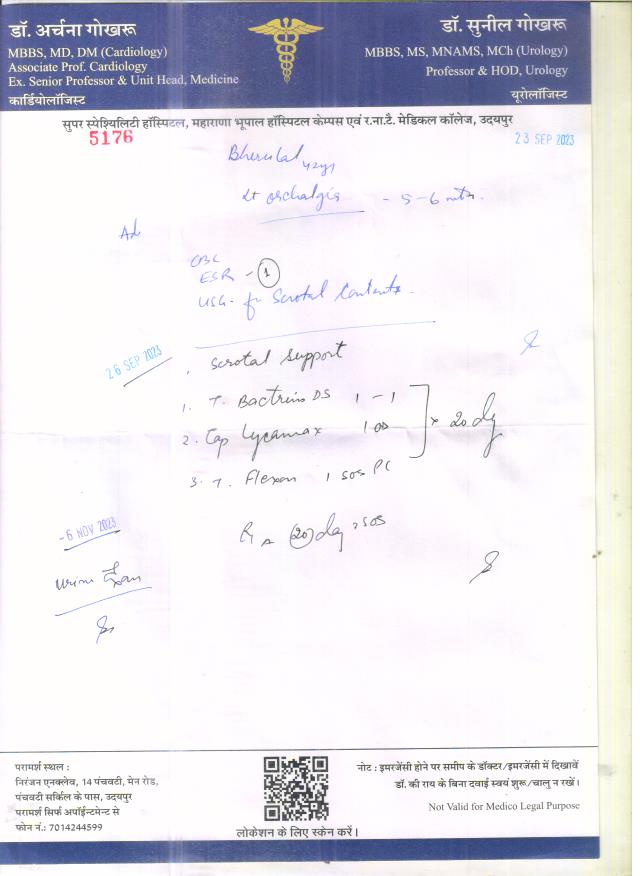 डॉ. अर्चना गोखरू
MBBS, MD, DM (Cardiology)
Associate Prof. Cardiology
Ex. Senior Professor & Unit Head, Medicine
कार्डियोलॉजिस्ट
डॉ. सुनील गोखरू
MBBS, MS, MNAMS, MCh (Urology)
Professor & HOD, Urology
यूरोलॉजिस्ट
सुपर स्पेश्यिलिटी हॉस्पिटल, महाराणा भूपाल हॉस्पिटल केम्पस एवं र.ना.टै. मेडिकल कॉलेज, उदयपुर
5176
23 SEP 2023
Bherulal 42yr
Lt orchalgia - 5-6 mth.
Ad
CBC
ESR - 1
USG - for Scrotal Contents.
26 SEP 2023
Scrotal Support
1. T. Bactrim DS 1 - 1
2. Cap Lycamax 1 OD x 20 dy
3. T. Flexon 1 SOS PC
R A 20 dy SOS
-6 NOV 2023
Urine Exam
परामर्श स्थल :
निरंजन एनक्लेव, 14 पंचवटी, मेन रोड,
पंचवटी सर्किल के पास, उदयपुर
परामर्श सिर्फ अपॉईन्टमेन्ट से
फोन नं.: 7014244599
लोकेशन के लिए स्केन करें।
नोट : इमरजेंसी होने पर समीप के डॉक्टर/इमरजेंसी में दिखावें
डॉ. की राय के बिना दवाई स्वयं शुरू/चालु न रखें।
Not Valid for Medico Legal Purpose